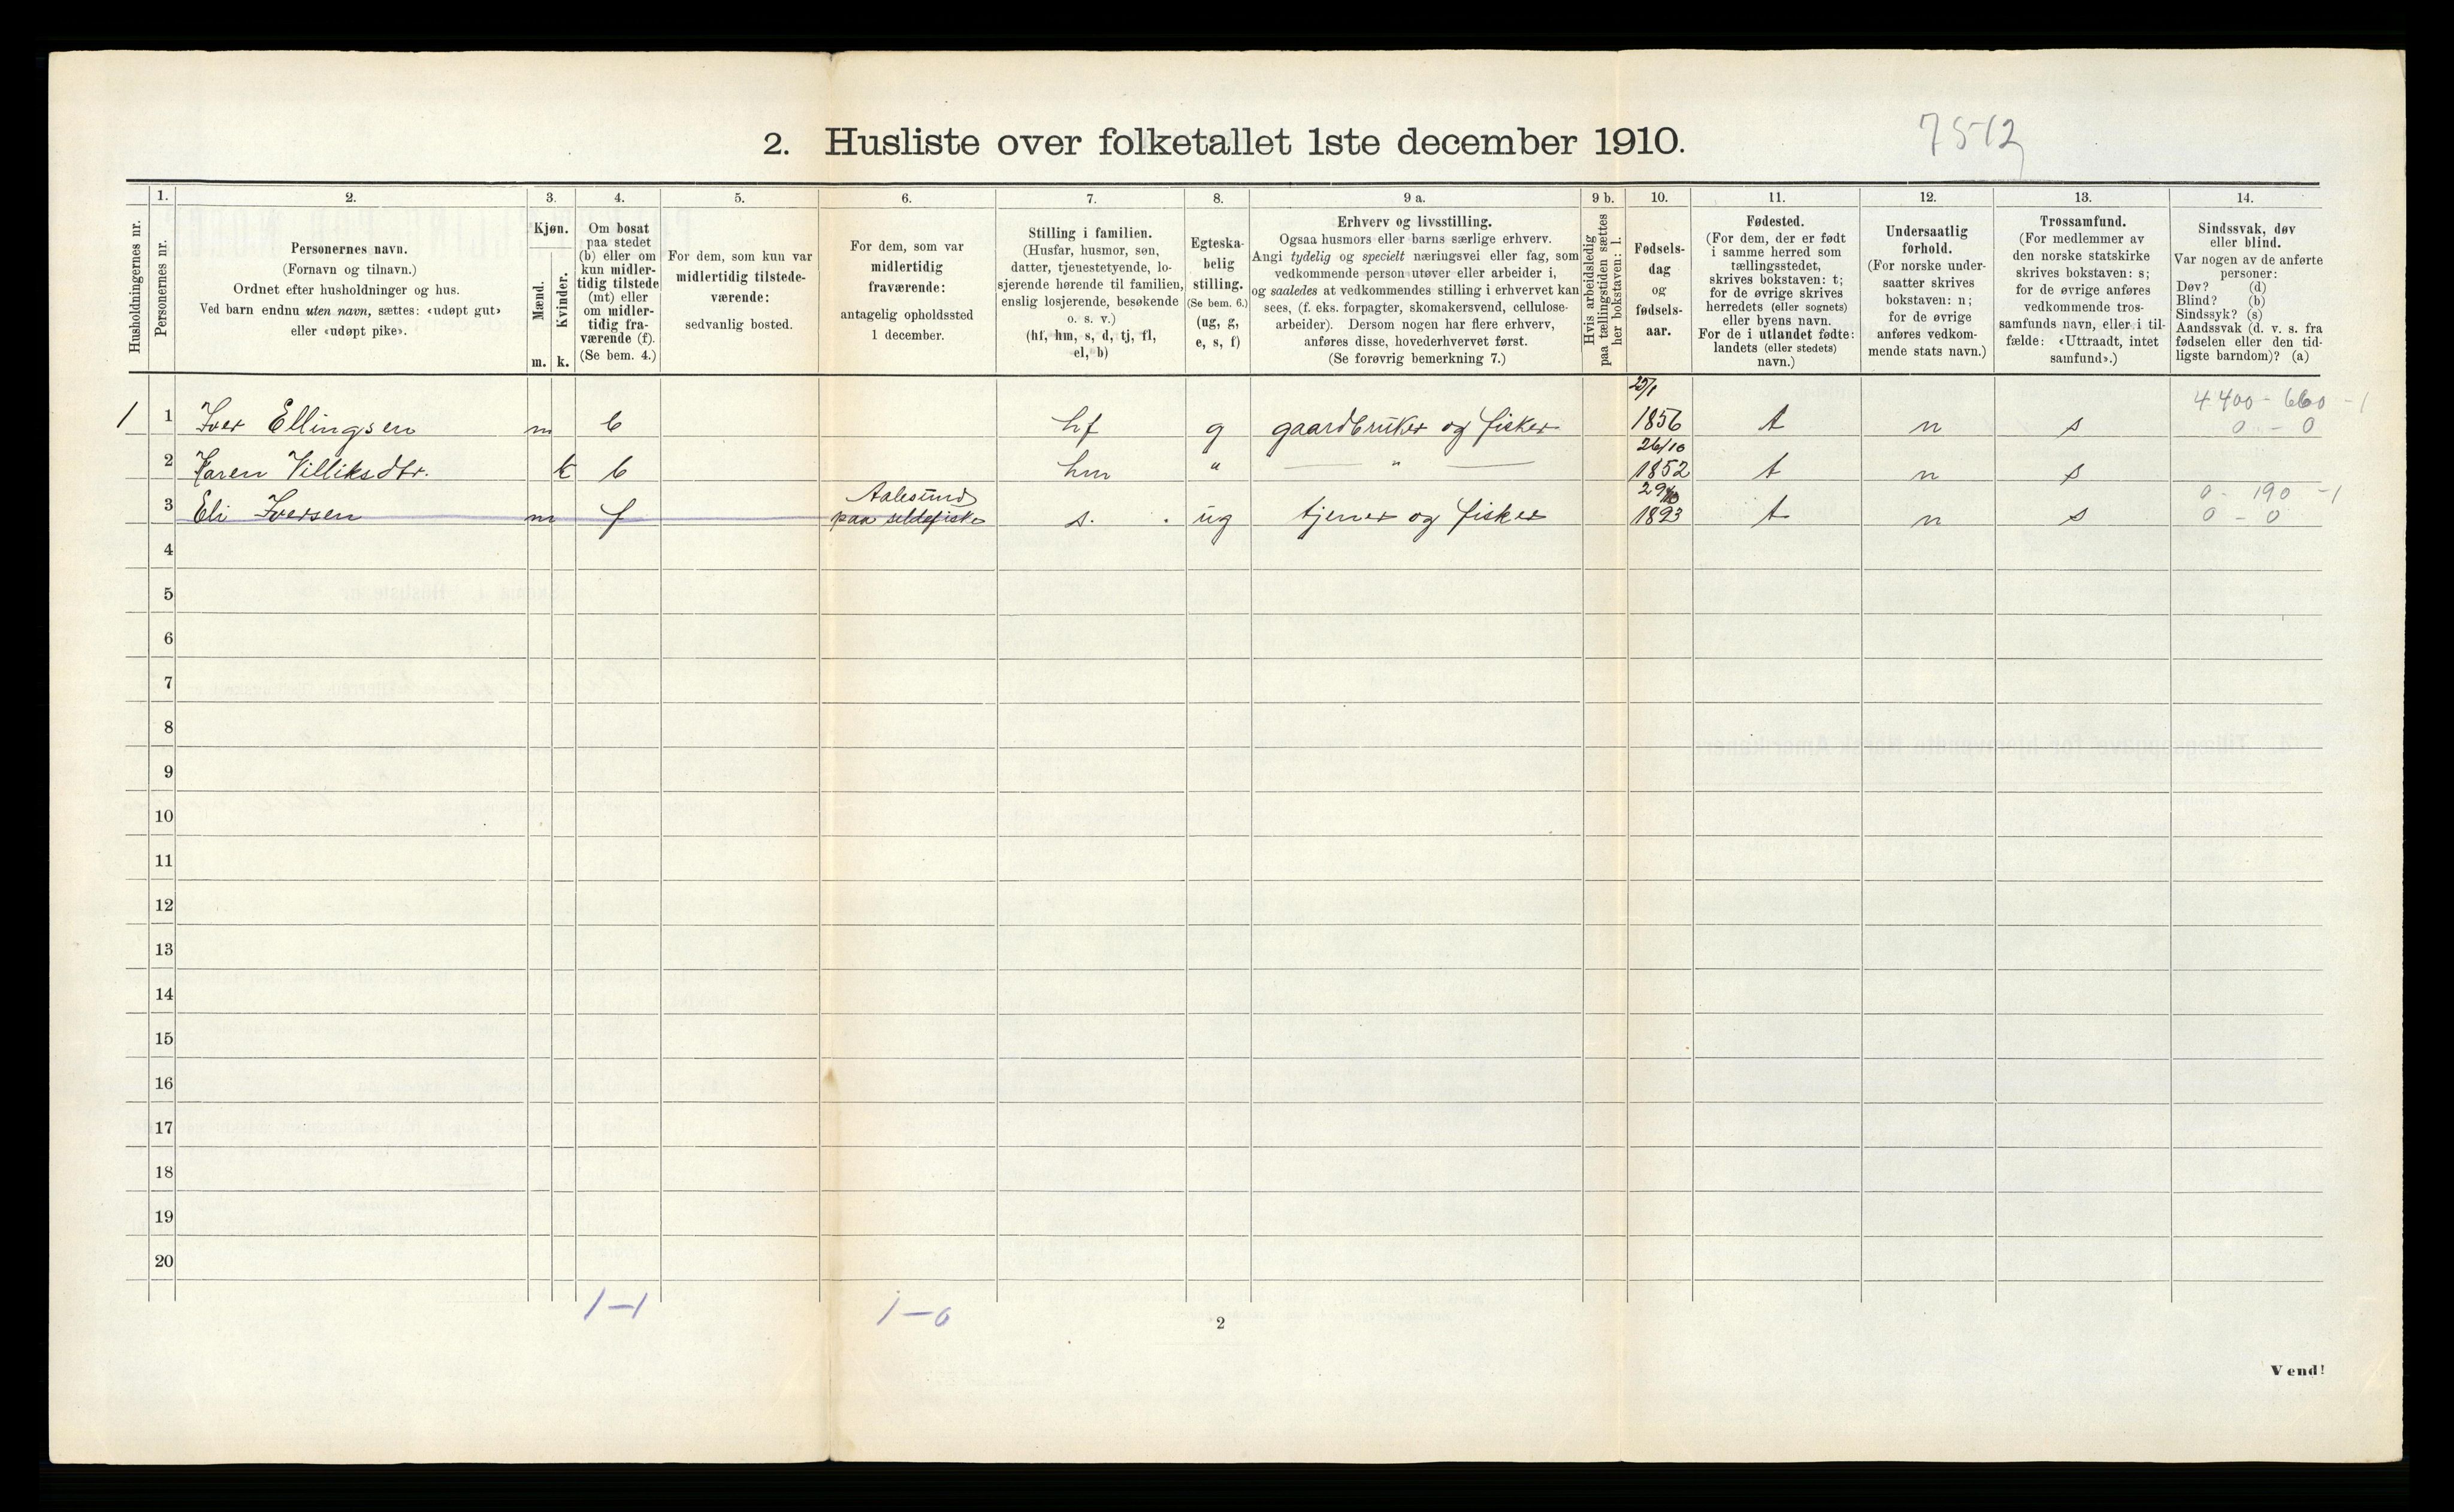 7512
2. Husliste over folketallet 1ste december 1910.
Husholdningernes nr.
1.
Personernes nr.
2.
Personernes navn.
(Fornavn og tilnavn.)
Ordnet efter husholdninger og hus.
Ved barn endnu uten navn, sættes: «udøpt gut»
eller «udøpt pike».
3.
Kjøn.
Mænd.
Kvinder.
m. k.
4.
Om bosat
paa stedet
(b) eller om
kun midler-
tidig tilstede
(mt) eller
om midler-
tidig fra-
værende (f).
(Se bem. 4.)
5.
For dem, som kun var
midlertidig tilstede-
værende:
sedvanlig bosted.
6.
For dem, som var
midlertidig
fraværende:
antagelig opholdssted
1 december.
7.
Stilling i familien.
(Husfar, husmor, søn,
datter, tjenestetyende, lo-
sjerende hørende til familien,
enslig losjerende, besøkende
o. s. v.)
(hf, hm, s, d, tj, fl,
el, b)
8.
Egteska-
belig
stilling.
(Se bem. 6.)
(ug, g,
e, s, f)
9 a.
Erhverv og livsstilling.
Ogsaa husmors eller barns særlige erhverv.
Angi tydelig og specielt næringsvei eller fag, som
vedkommende person utøver eller arbeider i,
og saaledes at vedkommendes stilling i erhvervet kan
sees, (f. eks. forpagter, skomakersvend, cellulose-
arbeider). Dersom nogen har flere erhverv,
anføres disse, hovederhvervet først.
(Se forøvrig bemerkning 7.)
9 b.
Hvis arbeidsledig
paa tællingstiden sættes
her bokstaven: l.
10.
Fødsels-
dag
og
fødsels-
aar.
11.
Fødested.
(For dem, der er født
i samme herred som
tællingsstedet,
skrives bokstaven: t;
for de øvrige skrives
herredets (eller sognets)
eller byens navn.
For de i utlandet fødte:
landets (eller stedets)
navn.)
12.
Undersaatlig
forhold.
(For norske under-
saatter skrives
bokstaven: n;
for de øvrige
anføres vedkom-
mende stats navn.)
13.
Trossamfund.
(For medlemmer av
den norske statskirke
skrives bokstaven: s;
for de øvrige anføres
vedkommende tros-
samfunds navn, eller i til-
fælde: «Uttraadt, intet
samfund».)
14.
Sindssvak, døv
eller blind.
Var nogen av de anførte
personer:
Døv? (d)
Blind? (b)
Sindssyk? (s)
Aandssvak (d. v. s. fra
fødselen eller den tid-
ligste barndom)? (a)
25/1
4 400 - 660 - 1
1 1 Iver Ellingsen m b hf g gaardbruker og fisker 1856 t n s 0 - 0
26/10
2 Karen Villiksdtr. k b hm " — " — 1852 t n s
Aalesund 0 - 190 - 1
3 Eli Iversen m f paa sildefiske s. ug tjener og fisker 1893 t n s 0 - 0
4
5
6
7
8
9
10
11
12
13
14
15
16
17
18
19
20
1-1 1-0
2
Vend!